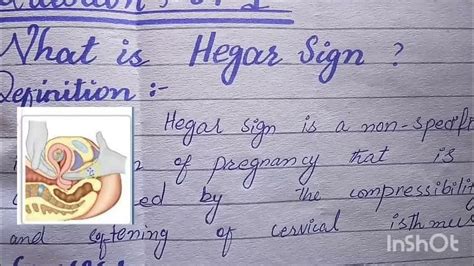 What is Hegar Sign ?
Definition :-
Hegar sign is a non-specifi
of pregnancy that is
ed by The compressibili
and softening of cervical isthmus
InShOt